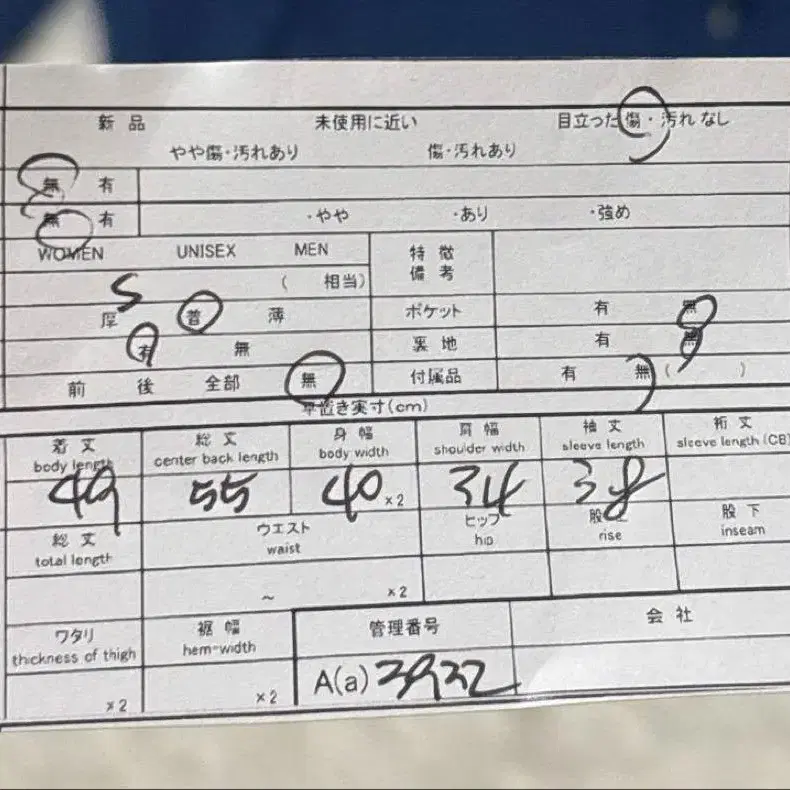 新品 未使用に近い 目立った傷・汚れなし
やや傷・汚れあり 傷・汚れあり
無 有
無 有 ・やや ・あり ・強め
WOMEN UNISEX MEN 特徴
備考
S ( 相当)
厚 普 薄 ポケット 有 無
有 無 裏地 有 無
前 後 全部 無 付属品 有 無 ( )
平置き実寸(cm)
着丈 総丈 身幅 肩幅 袖丈 裄丈
body length center back length body width shoulder width sleeve length sleeve length (CB)
49 55 40 ×2 34 38
総丈 ウエスト ヒップ 股上 股下
total length waist hip rise inseam
~ ×2
ワタリ 裾幅 管理番号 会社
thickness of thigh hem-width
×2 ×2 A(a) 3932